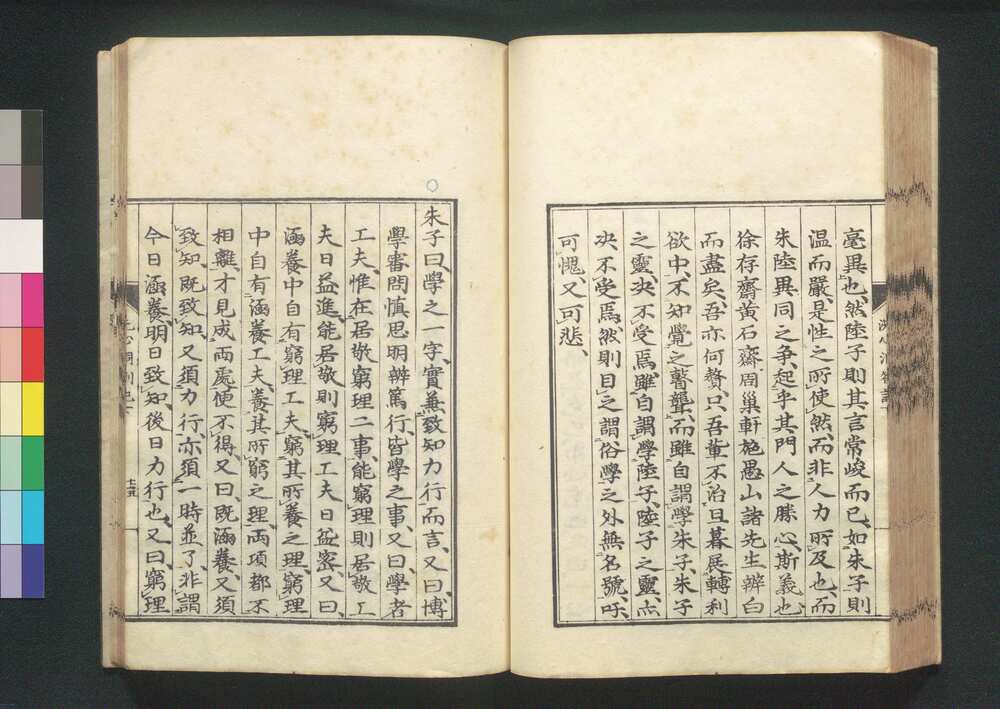 毫異也、然陸子則其言常峻而已、如朱子則
温而嚴、是性之所使然、而非人力所及也、而
朱陸異同之爭、起乎其門人之勝心、斯義也
徐存齋黄石齋周巢軒施愚山諸先生辨白
而盡矣、吾亦何贅、只吾輩不治旦暮展轉利
欲中、不知覺之聾聾、而雖自謂學朱子、朱子
之靈、決不受焉、雖自謂學陸子、陸子之靈、亦
決不受焉、然則目之謂俗學之外無名號、吁
可愧、又可悲、
朱子曰、學之一字、實兼致知力行而言、又曰、博
學審問慎思明辨篤行、皆學之事、又曰、學者
工夫、惟在居敬窮理二事、能窮理則居敬工
夫日益進、能居敬則窮理工夫日益密、又曰、
涵養中自有窮理工夫、窮其所養之理、窮理
中自有涵養工夫、養其所窮之理、兩項都不
相離、才見成兩處、便不得、又曰、既涵養、又須
致知、既致知、又須力行、亦須一時並了、非謂
今日涵養、明日致知、後日力行也、又曰、窮理